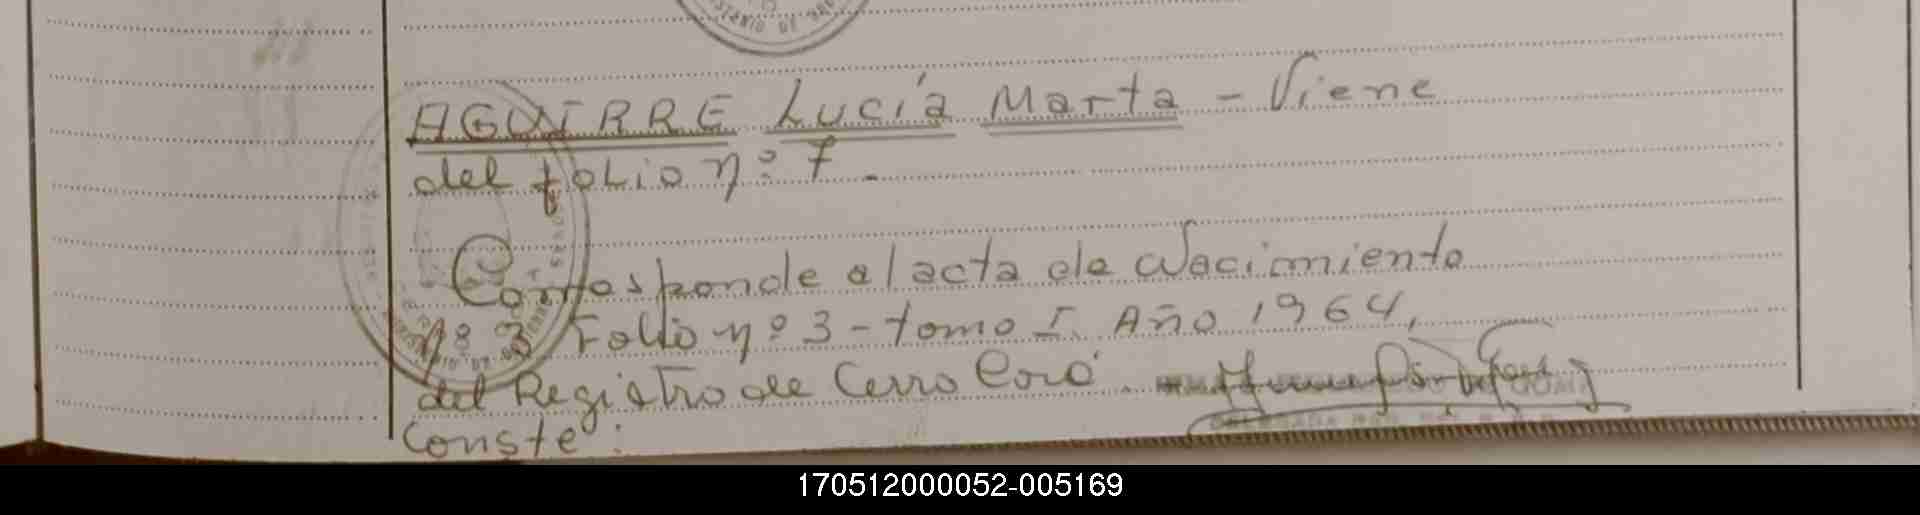 AGUIRRE Lucía Marta - Viene
del folio nº 7.-
Corresponde al acta de Nacimiento
nº 3 Folio nº 3 - tomo I. Año 1964,
del Registro de Cerro Corá.
Conste:
170512000052-005169